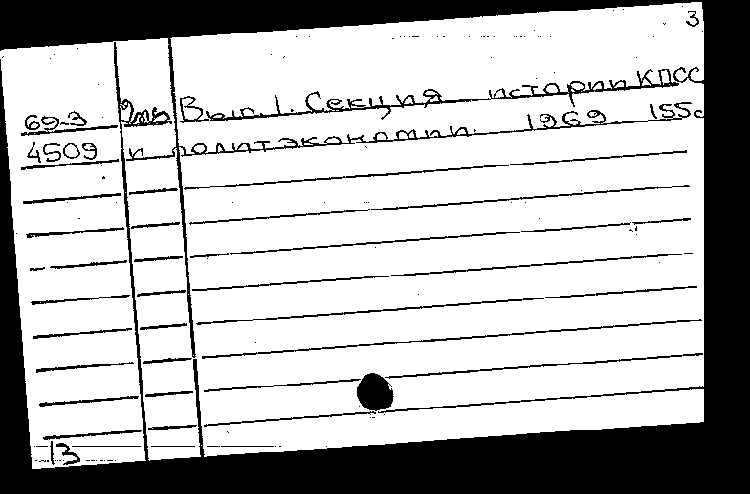 3
69-3 Вып. 1. Секция истории КПСС
4509 и политэкономии. 1969. 155с
13